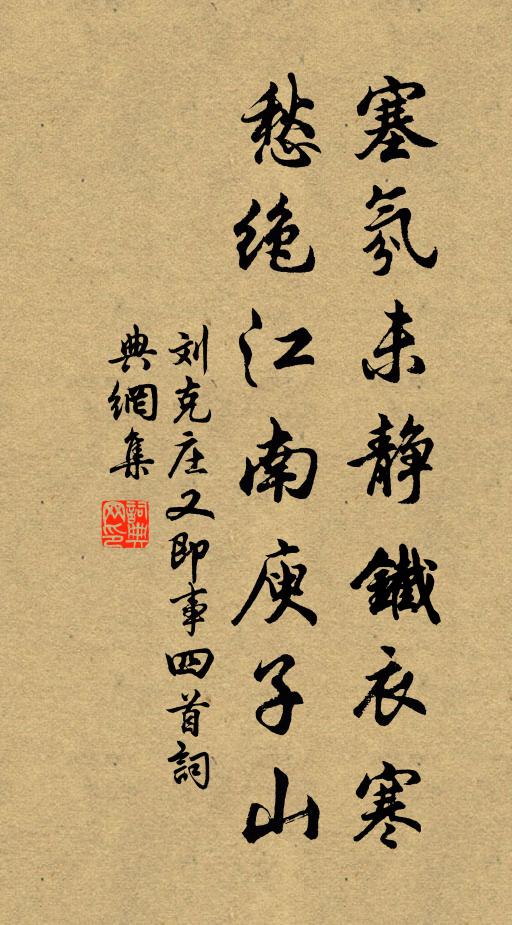 塞氛未静鐵衣寒
愁絶江南庾子山
刘克庄又即事四首詞
典網集
詞典網印